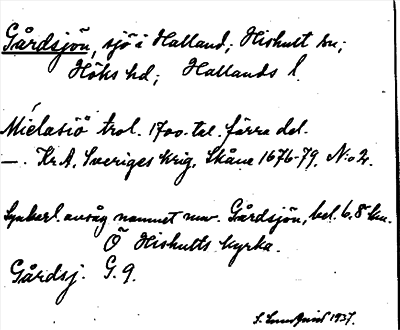 Gårdsjön, sjö i Halland; Hishult sn;
Höks hd; Hallands l.
Mielasiö trol. 1700-tal. förra del.
—. Kr.A. Sveriges krig. Skåne 1676-79. N:o 2.
avsåg namnet nuv. Gårdsjön, bel. 6,8 km.
Ö Hishults kyrka.
Gårdsj. G. 9.
S. Lundqvist 1937.